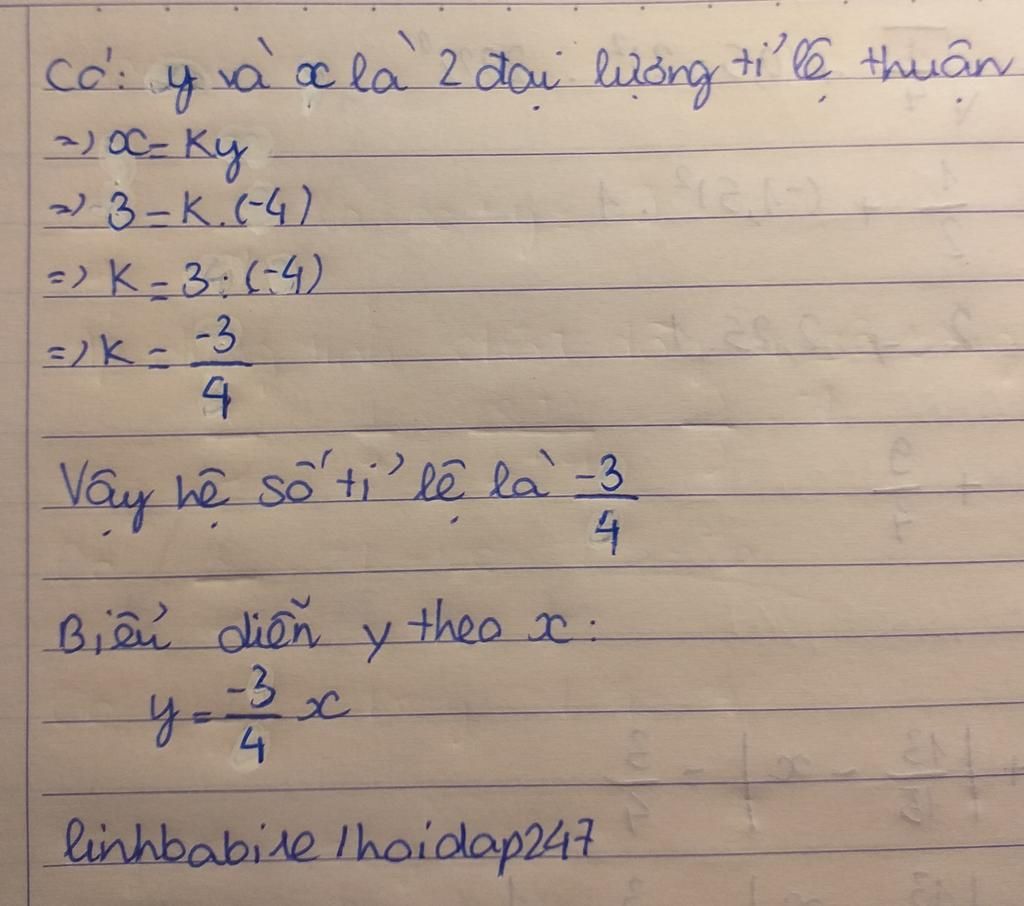 Có: y và x là 2 đại lượng tỉ lệ thuận
=> x = Ky
=> 3 = K.(-4)
=> K = 3:(-4)
=> K = -3/4
Vậy hệ số tỉ lệ là -3/4
Biểu diễn y theo x:
y = -3/4 x
linhbabixe/hoidap247